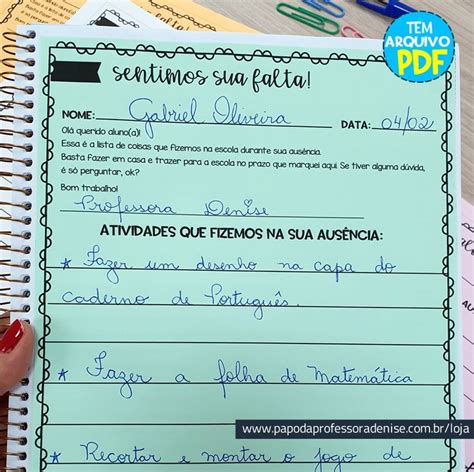 TEM
ARQUIVO
PDF
sentimos sua falta!
NOME: Gabriel Oliveira DATA: 04/02
Olá querido aluno(a)!
Essa é a lista de coisas que fizemos na escola durante sua ausência.
Basta fazer em casa e trazer para a escola no prazo que marquei aqui. Se tiver alguma dúvida,
é só perguntar, ok?
Bom trabalho!
Professora Denise
ATIVIDADES QUE FIZEMOS NA SUA AUSÊNCIA:
* Fazer um desenho na capa do
caderno de Português.
* Fazer a folha de Matemática
www.papodaprofessoradenise.com.br/loja
* Recortar e montar o jogo de